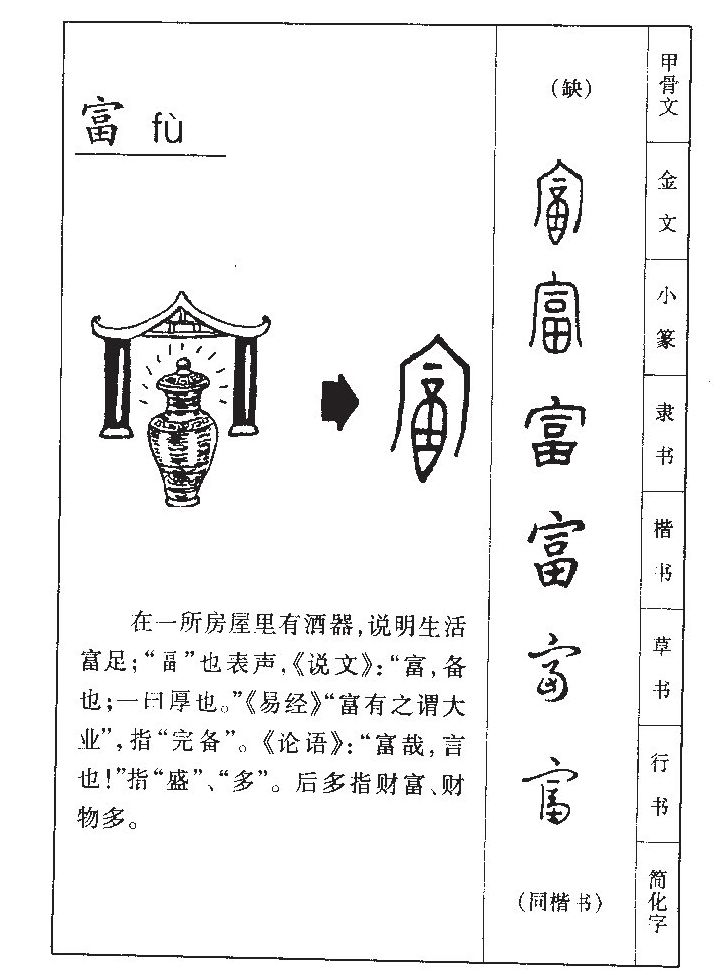 富 fù
在一所房屋里有酒器，说明生活
富足；“畐”也表声，《说文》：“富，备
也；一曰厚也。”《易经》“富有之谓大
业”，指“完备”。《论语》：“富哉，言
也！”指“盛”、“多”。后多指财富、财
物多。
（缺）
甲骨文
富
金文
富
小篆
富
隶书
富
楷书
富
草书
富
行书
（同楷书）
简化字